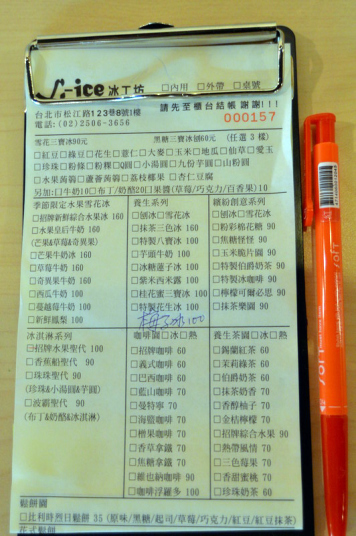 J-ice 冰工坊 □內用 □外帶 □桌號
台北市松江路123巷8號1樓 請先至櫃台結帳 謝謝!!!
電話:(02)2506-3656 000157
雪花三寶冰90元 黑糖三寶冰刨60元 (任選3樣)
□紅豆□綠豆□花生□薏仁□大麥□玉米□地瓜□仙草□愛玉
□珍珠□粉條□粉粿□Q圓□小湯圓□九份芋圓□山粉圓
□水果蒟蒻□蘆薈蒟蒻□荔枝椰果 □杏仁豆腐
另加:□牛奶10□布丁/奶酪20□果醬(草莓/巧克力/百香果)10
季節限定水果雪花冰
□招牌新鮮綜合水果冰 160
□水果皇后牛奶 160
(芒果&草莓&奇異果)
□芒果牛奶冰 160
□草莓牛奶 160
□奇異果牛奶 160
□西瓜牛奶 100
□蔓越莓牛奶 100
□新鮮鳳梨 100
養生系列
□刨冰□雪花冰
□抹茶三色冰 160
□特製八寶冰 100
□芋頭牛奶 100
□冰糖蓮子冰 100
□紫米西米露 100
□桂花蜜三寶冰 100
□特製花生冰 100
100
繽紛創意系列
□刨冰□雪花冰
□粉彩棉花糖 90
□焦糖怪怪 90
□玉米脆片園 90
□特製伯爵奶茶 90
□特製冰咖啡 90
□檸檬可爾必思 90
□抹茶樂園 90
冰淇淋系列
□招牌水果聖代 100
□香蕉船聖代 90
□珠珠聖代 90
(珍珠&小湯圓&芋圓)
□波霸聖代 90
(布丁&奶酪&冰淇淋)
咖啡園□冰□熱
□招牌咖啡 60
□義式咖啡 60
□巴西咖啡 60
□藍山咖啡 70
□曼特寧 70
□海鹽咖啡 70
□榛果咖啡 70
□香草拿鐵 70
□焦糖拿鐵 70
□維也納咖啡 90
□咖啡浮羅多 100
養生茶園□冰□熱
□錫蘭紅茶 60
□茉莉綠茶 60
□伯爵奶茶 60
□抹茶奶香 70
□香醇柚子 70
□金桔檸檬 70
□招牌綜合水果 90
□熱帶風情 70
□三色莓果 70
□香甜蜜桃 70
□珍珠奶茶 60
鬆餅園
□比利時烈日鬆餅 35 (原味/黑糖/起司/草莓/巧克力/紅豆/紅豆抹茶)
花式鬆餅